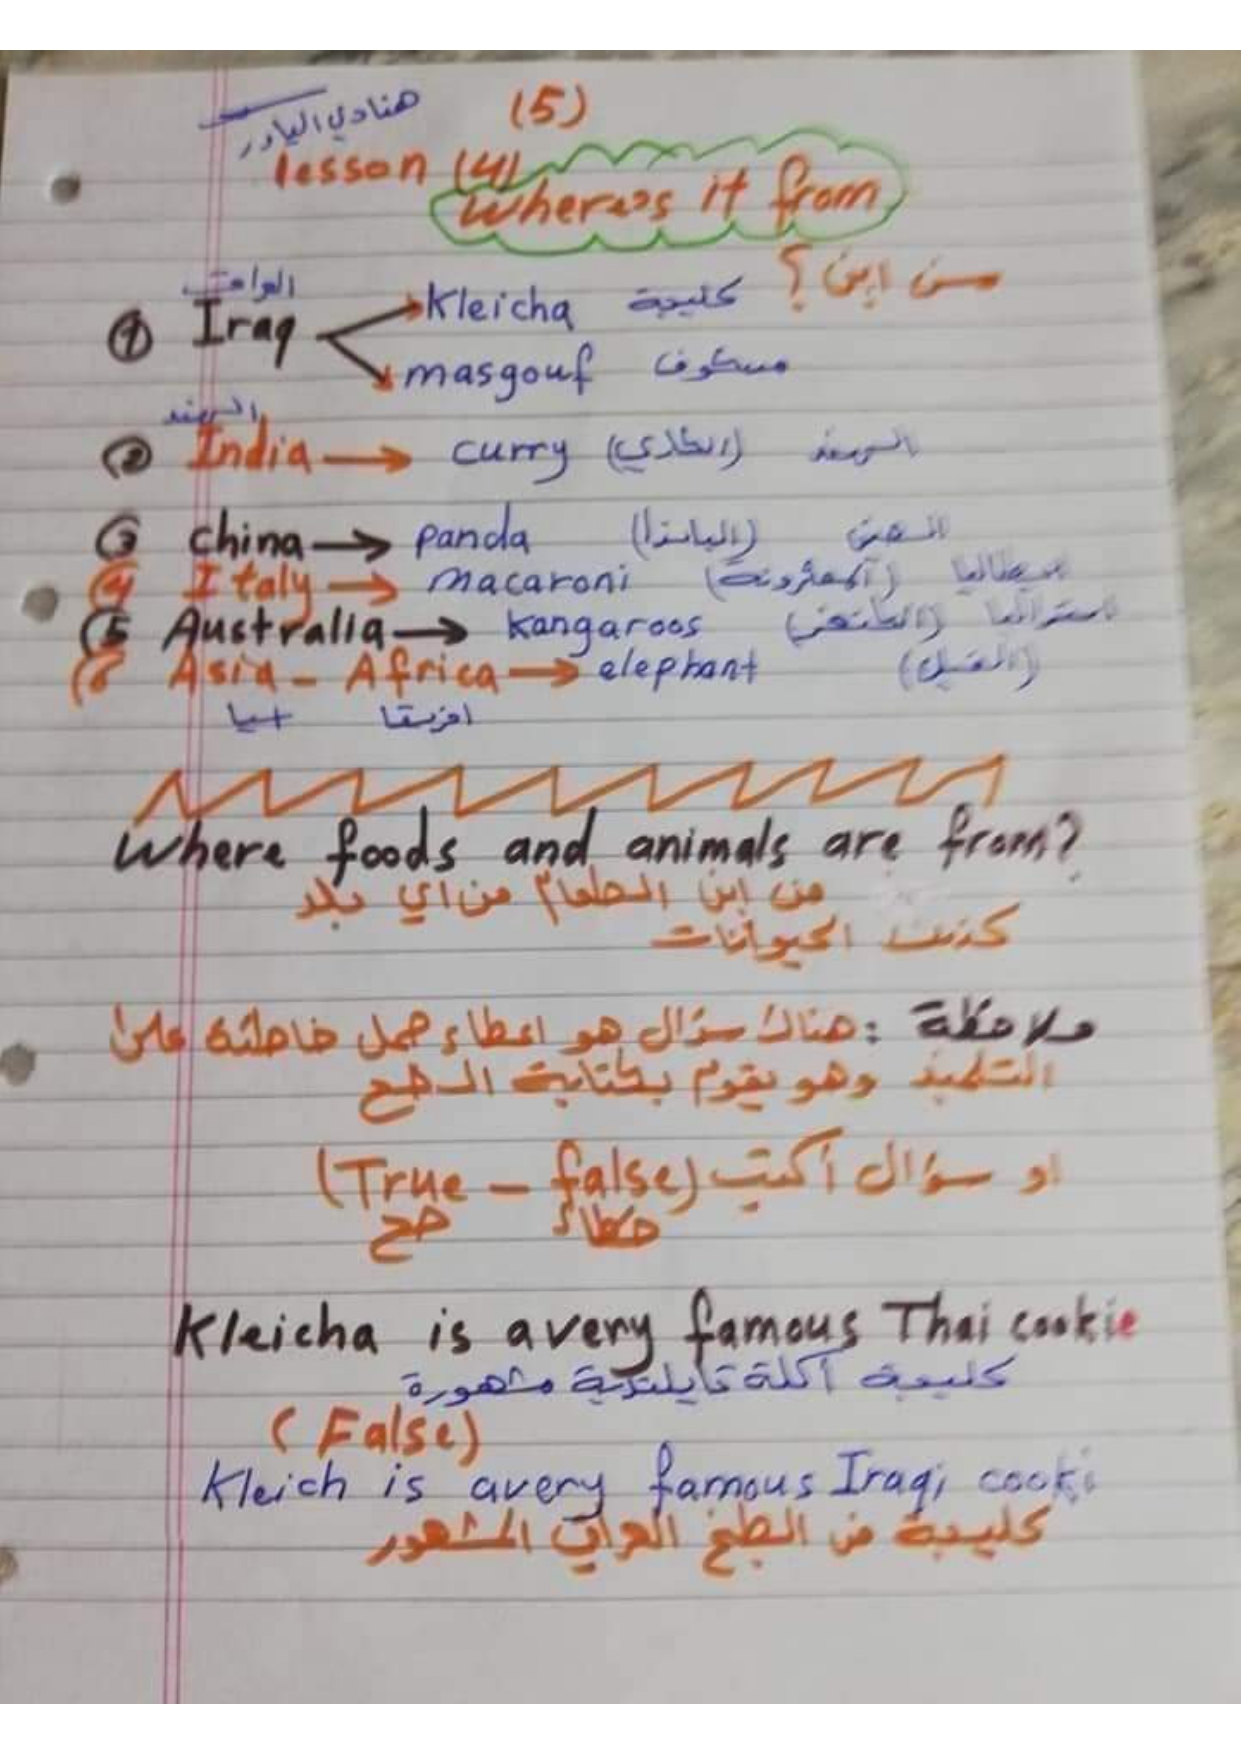 هنادي الياور (5)
lesson (4)
Where's it from
من اين؟
العراق
① Iraq → Kleicha كليجة
→ masgouf مسكوف
الهند
② India → curry (الكاري) الهند
③ China → panda (الباندا) الصين
④ Italy → macaroni (المعكرونة) ايطاليا
(5 Australia → kangaroos (الكنغر) استراليا
(6 Asia - Africa → elephant (الفيل)
اسيا افريقا
Where foods and animals are from?
من اين الطعام من اي بلد
كذلك الحيوانات
ملاحظة : هناك سؤال هو اعطاء جمل خاطئة على
التلميذ وهو يقوم بكتابة الصح
او سؤال أكتب (True - false)
صح خطاء
Kleicha is a very famous Thai cookie
كليجة أكلة تايلندية مشهورة
(False)
Kleich is a very famous Iraqi cooki
كليجة من الطبخ العراقي المشهور